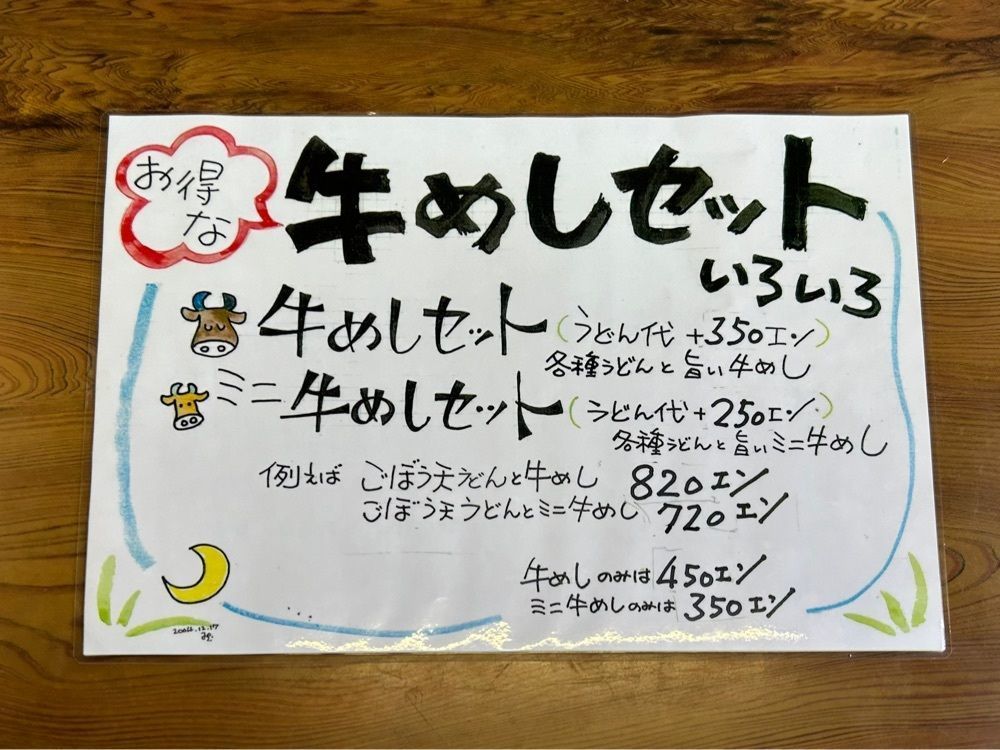 お得な
牛めしセット
いろいろ
牛めしセット(うどん代 +350エン)
各種うどんと旨い牛めし
ミニ牛めしセット(うどん代+250エン)
各種うどんと旨いミニ牛めし
例えば ごぼう天うどんと牛めし 820エン
ごぼう天うどんとミニ牛めし 720エン
牛めしのみは450エン
ミニ牛めしのみは350エン